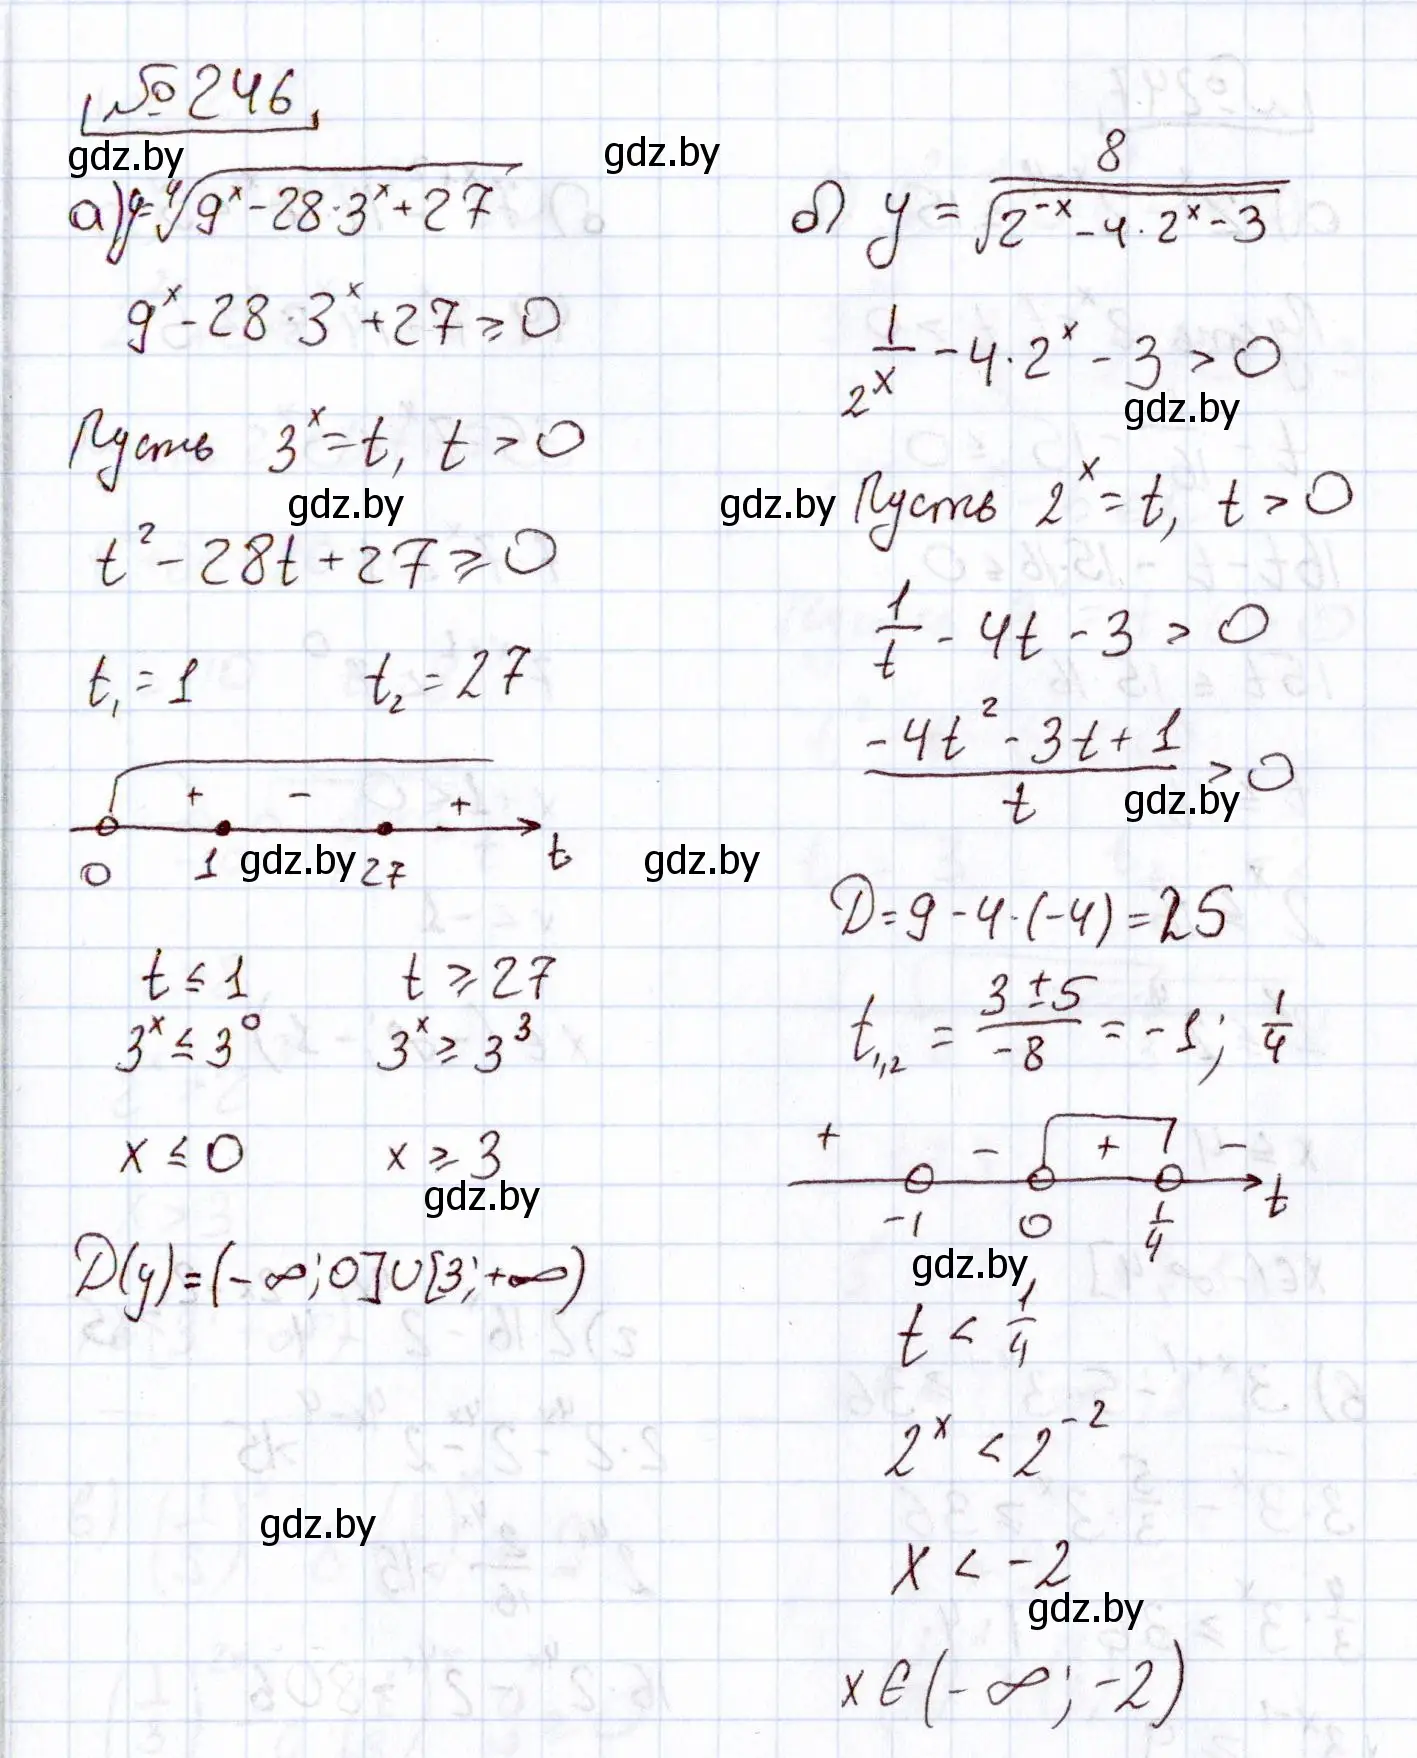 №246
gdz.by
gdz.by
а) y=⁴√(9ˣ-28·3ˣ+27)
9ˣ-28·3ˣ+27≥0
Пусть 3ˣ=t, t>0
gdz.by
t²-28t+27≥0
t₁=1 t₂=27
+ - +
0 1 27 t
gdz.by
gdz.by
t≤1 t≥27
3ˣ≤3⁰ 3ˣ≥3³
x≤0 x≥3
gdz.by
D(y)=(-∞;0]∪[3;+∞)
gdz.by
б) y = 8/√(2⁻ˣ-4·2ˣ-3)
1/2ˣ -4·2ˣ-3>0
gdz.by
gdz.by
Пусть 2ˣ=t, t>0
1/t -4t-3>0
(-4t²-3t+1)/t >0
gdz.by
D=9-4·(-4)=25
t₁,₂ = (3±5)/-8 = -1; 1/4
+ - + -
-1 0 1/4 t
gdz.by
t < 1/4
2ˣ < 2⁻²
x < -2
gdz.by
x∈(-∞;-2)